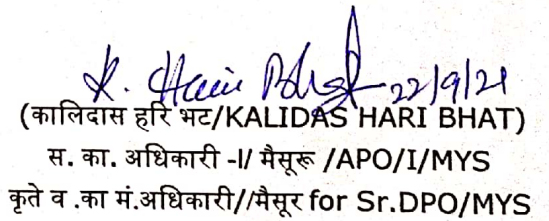 K. Hari Bhat 22/9/21
(कालिदास हरि भट/KALIDAS HARI BHAT)
स. का. अधिकारी -I/ मैसूरू /APO/I/MYS
कृते व .का मं.अधिकारी//मैसूर for Sr.DPO/MYS